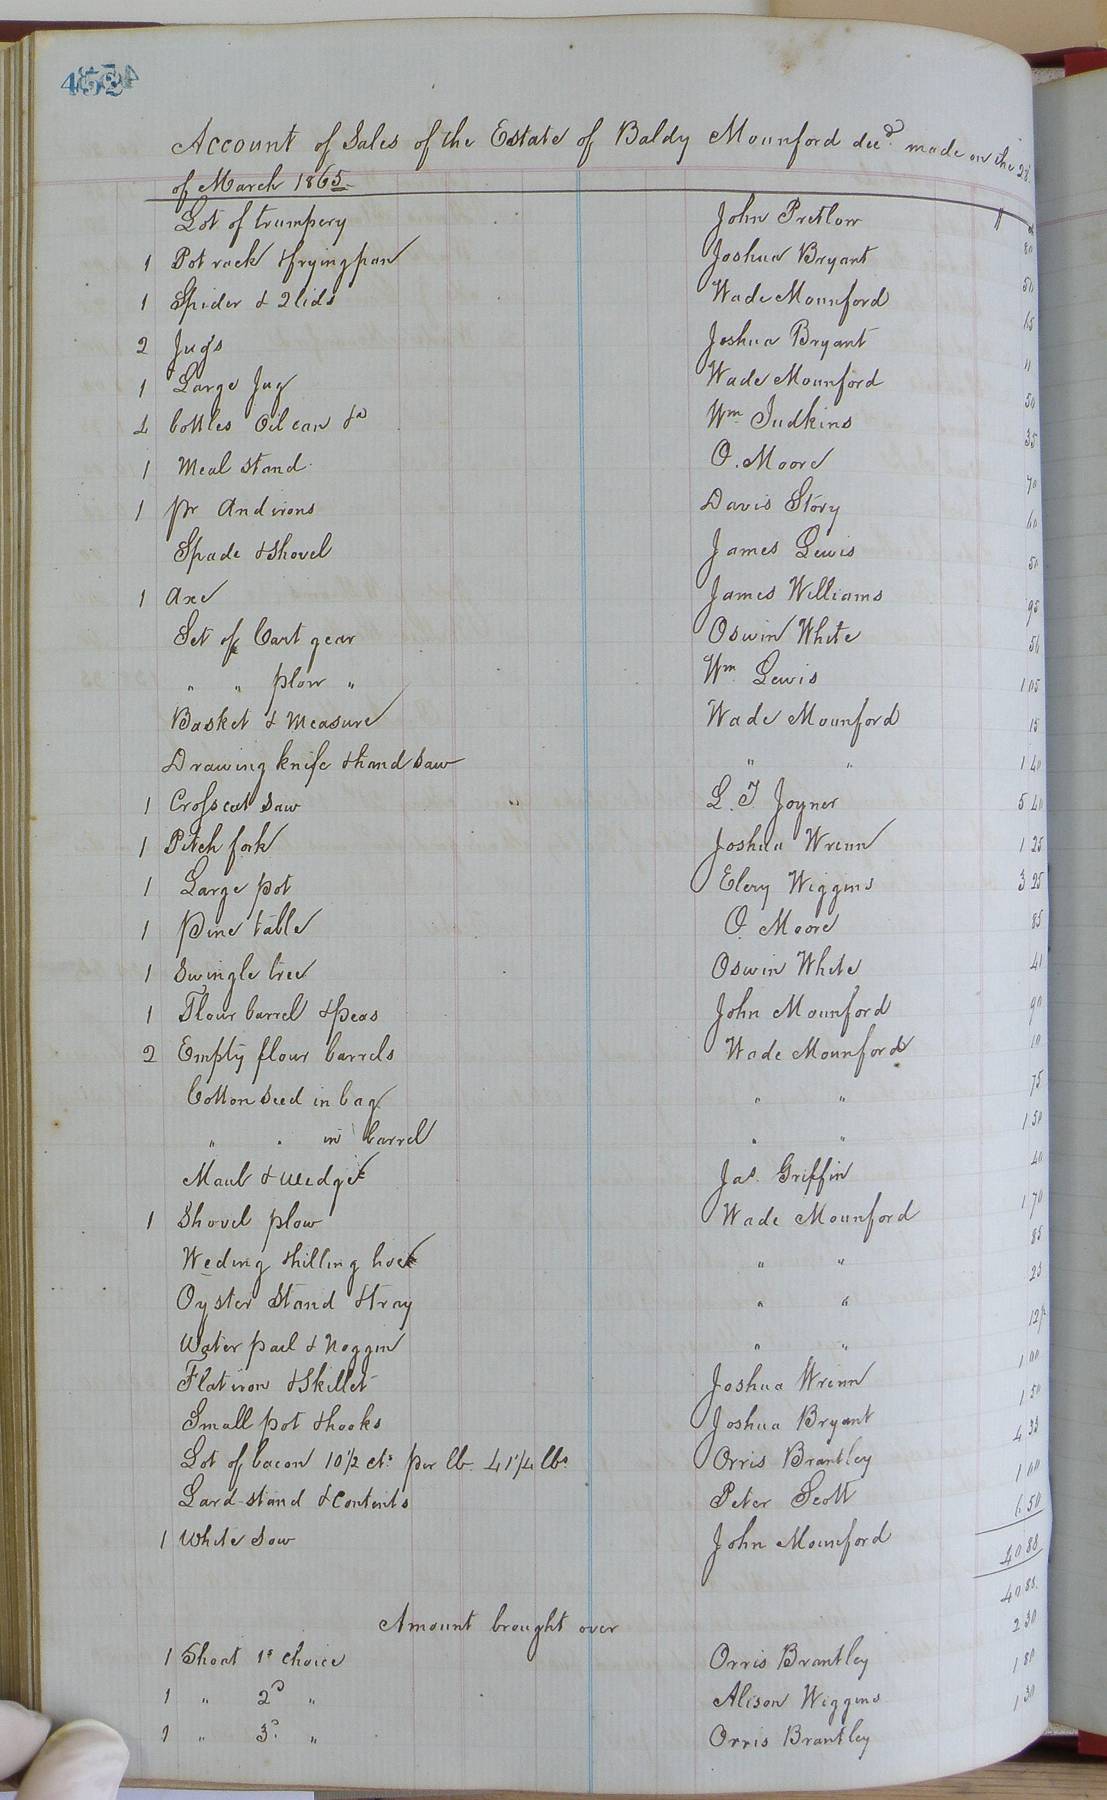 452
Account of Sales of the Estate of Baldy Mounford decd. made on the 28
of March 1865
Lot of trumpery John Pretlow "
1 Pot rack & frying pan Joshua Bryant 80
1 Spider & 2 lids Wade Mounford 50
2 Jugs Joshua Bryant 65
1 Large Jug Wade Mounford "
4 bottles Oil can &c Wm Judkins 50
1 Meal stand O. Moore 35
1 pr Andirons Davis Story 70
Spade & shovel James Lewis 60
1 Axe James Williams 50
Set of Cart gear Oswin White 95
" " plow " Wm Lewis 56
Basket & Measure Wade Mounford 1 05
Drawing knife & hand saw " " 15
1 Crosscut saw L. T. Joyner 1 40
1 Pitch fork Joshua Wrenn 5 40
1 Large pot Elery Wiggins 1 25
1 Pine table O. Moore 3 25
1 Swingle tree Oswin White 85
1 Flour barrel & peas John Mounford 41
2 Empty flour barrels Wade Mounford 90
Cotton Seed in bag " " 10
" " in barrel " " 75
Maul & wedge Jas. Griffin 1 50
1 Shovel plow Wade Mounford 40
Weding & hilling hoe " " 1 70
Oyster Stand & tray " " 85
Water pail & Noggin " " 25
Flat iron & Skillet Joshua Wrenn 12 1/2
Small pot & hooks Joshua Bryant 1 00
Lot of bacon 10 1/2 cts per lb. 41 1/4 lbs Orris Brantley 1 50
Lard stand & Contents Peter Scott 4 33
1 White Sow John Mounford 1 00
6 50
40 88
Amount brought over 40 88
1 Shoat 1st Choice Orris Brantley 2 30
1 " 2d " Alison Wiggins 1 80
1 " 3d " Orris Brantley 1 30